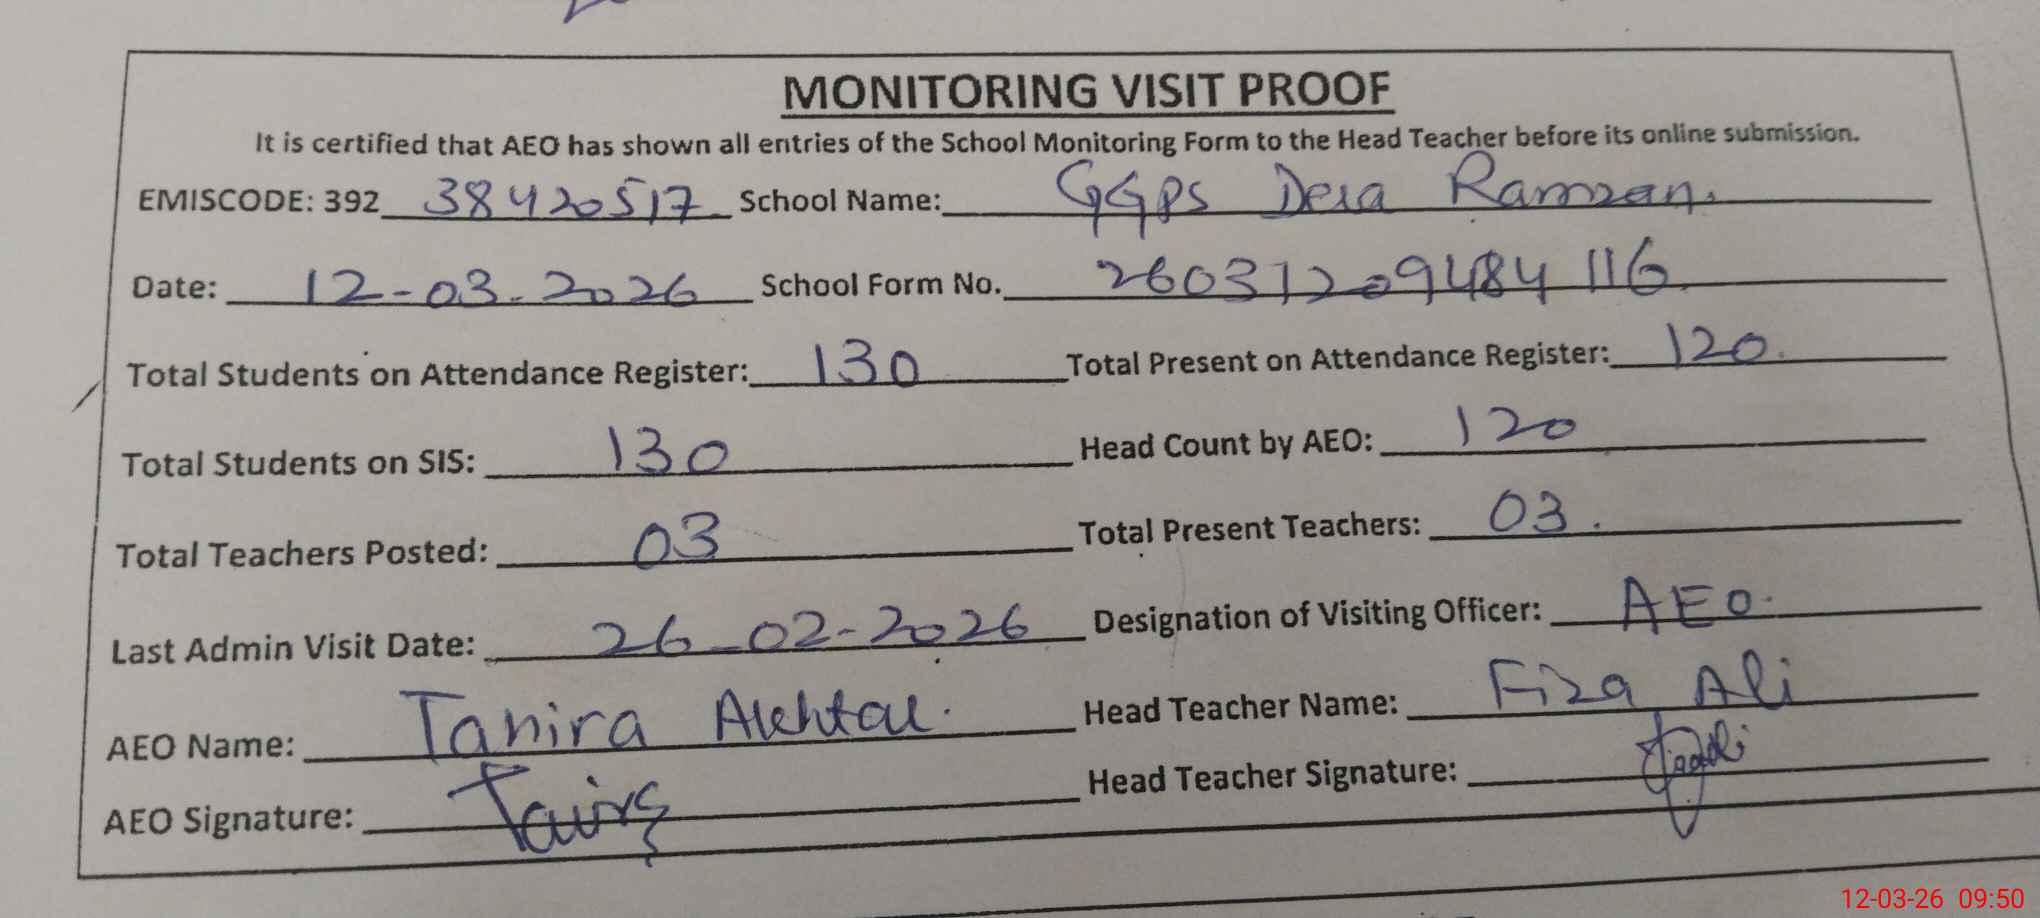 MONITORING VISIT PROOF
It is certified that AEO has shown all entries of the School Monitoring Form to the Head Teacher before its online submission.
EMISCODE: 392 38420517 School Name: GGPS Dera Ramzan.
Date: 12-03-2026 School Form No. 26031209484116
Total Students on Attendance Register: 130 Total Present on Attendance Register: 120.
Total Students on SIS: 130 Head Count by AEO: 120
Total Teachers Posted: 03 Total Present Teachers: 03.
Last Admin Visit Date: 26-02-2026 Designation of Visiting Officer: AEO.
AEO Name: Tahira Akhtar. Head Teacher Name: Fiza Ali
AEO Signature: Head Teacher Signature:
12-03-26 09:50